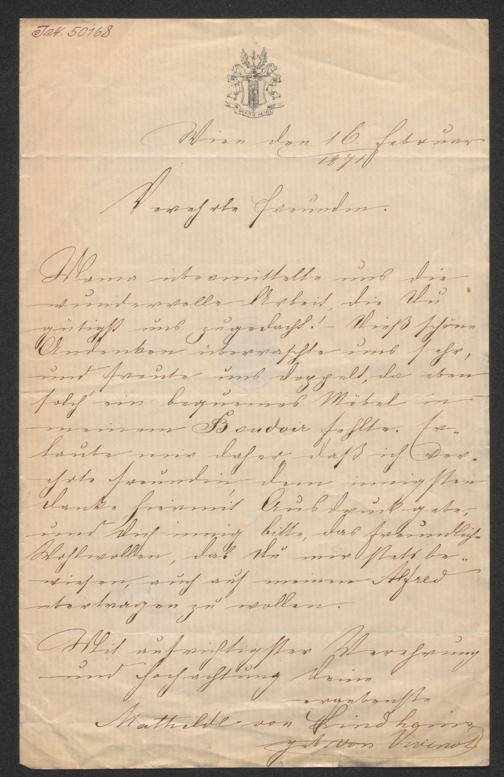 J.N. 50168
Wien den 16. Februar
1871
Verehrte Freundin.
Mama übermittelte uns die
wundervolle Arbeit, die Du
gütigst uns zugedacht! – Dieß schöne
Andenken überraschte uns sehr,
und freute uns doppelt, da eben
solch' ein bequemes Möbel in
meinem Boudoir fehlte. Er-
laube mir daher daß ich Ver-
ehrte Freundin dem innigsten
Danke hiermit Ausdruck gebe,
und Dich innig bitte, das freundliche
Wohlwollen, das Du mir stets be-
wiesen, auch auf meinen Alfred
übertragen zu wollen.
Mit aufrichtigster Verehrung
und Hochachtung Deine
ergebenste
Mathilde von Lindheim
geb. von Vivenot